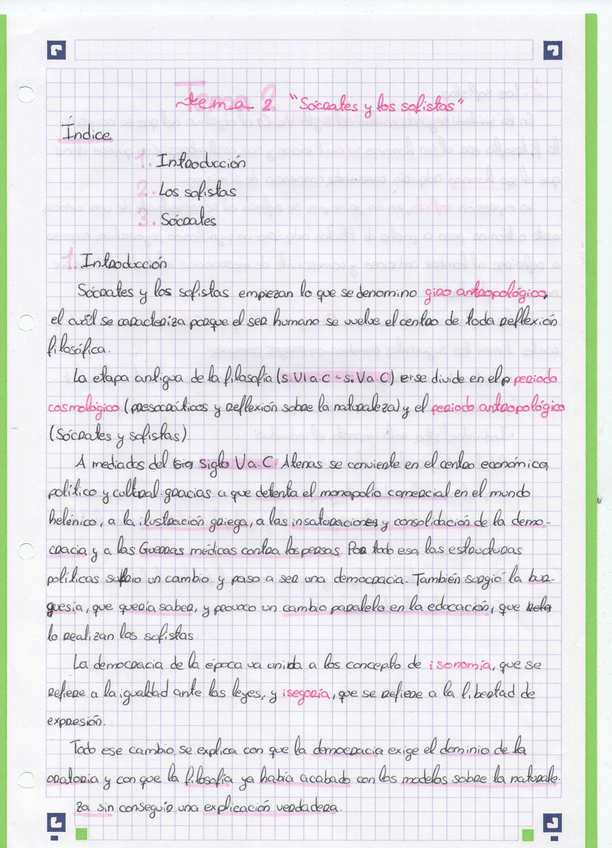 Tema 2. "Sócrates y los sofistas"
Índice
1. Introducción
2. Los sofistas
3. Sócrates
1. Introducción
Sócrates y los sofistas empiezan lo que se denomino giro antropológico,
el cuál se caracteriza porque el ser humano se vuelve el centro de toda reflexión
filosófica.
La etapa antigua de la filosofía (s.VI a.C - s.V a.C) se divide en el periodo
cosmológico (presocráticos y reflexión sobre la naturaleza) y el periodo antropológico
(Sócrates y sofistas)
A mediados del siglo V a.C Atenas se convierte en el centro económico,
político y cultural gracias a que detenta el monopolio comercial en el mundo
helénico, a la ilustración griega, a las instauraciones y consolidación de la demo-
cracia y a las Guerras médicas contra los persas. Por todo eso, las estructuras
políticas sufrio un cambio y paso a ser una democracia. También surgió la bur-
guesia, que queria saber, y provoco un cambio paralelo en la educación, que
lo realizan los sofistas.
La democracia de la época va unida a los concepto de isonomía, que se
refiere a la igualdad ante las leyes, y isegoría, que se refiere a la libertad de
expresión.
Todo ese cambio se explica con que la democracia exige el dominio de la
oratoria y con que la filosofía ya había acabado con los modelos sobre la naturale-
za sin conseguir una explicación verdadera.